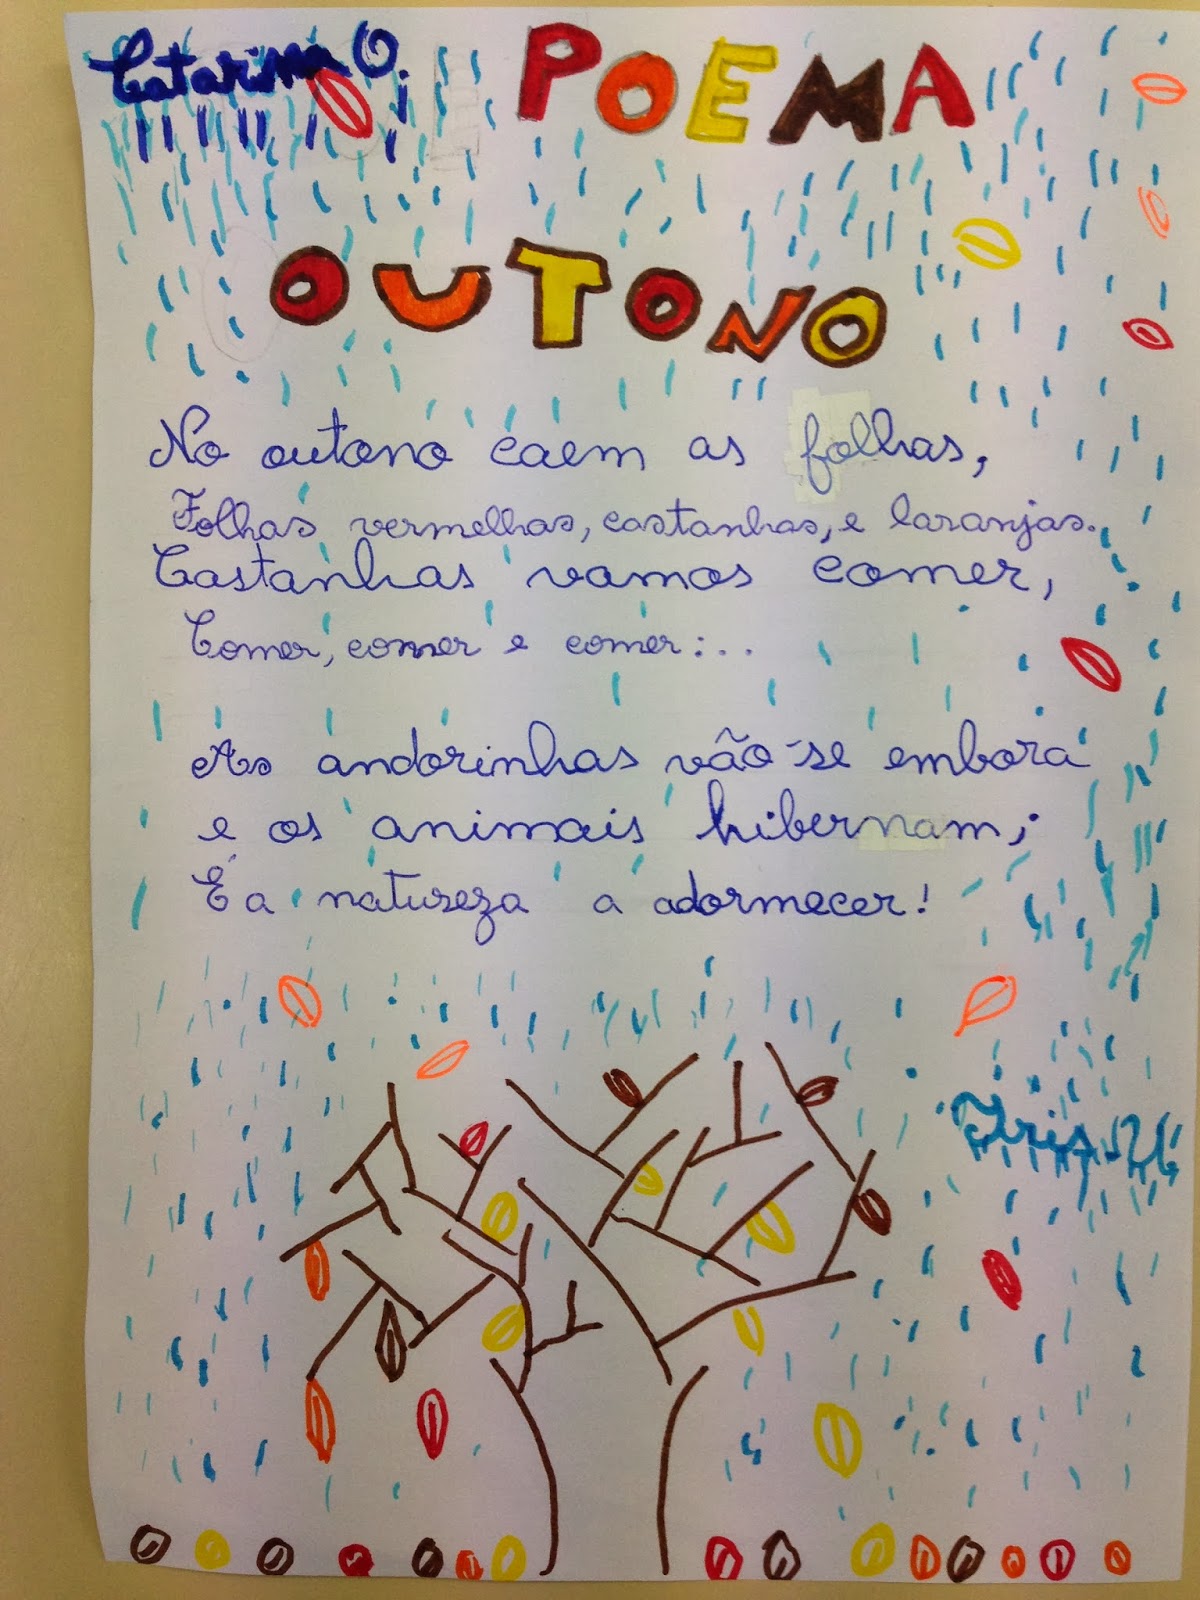 Catarina O.
POEMA
OUTONO
No outono caem as folhas,
Folhas vermelhas, castanhas, e laranjas.
Castanhas vamos comer,
Comer, comer e comer...
As andorinhas vão-se embora
e os animais hibernam;
É a natureza a adormecer!
Iris